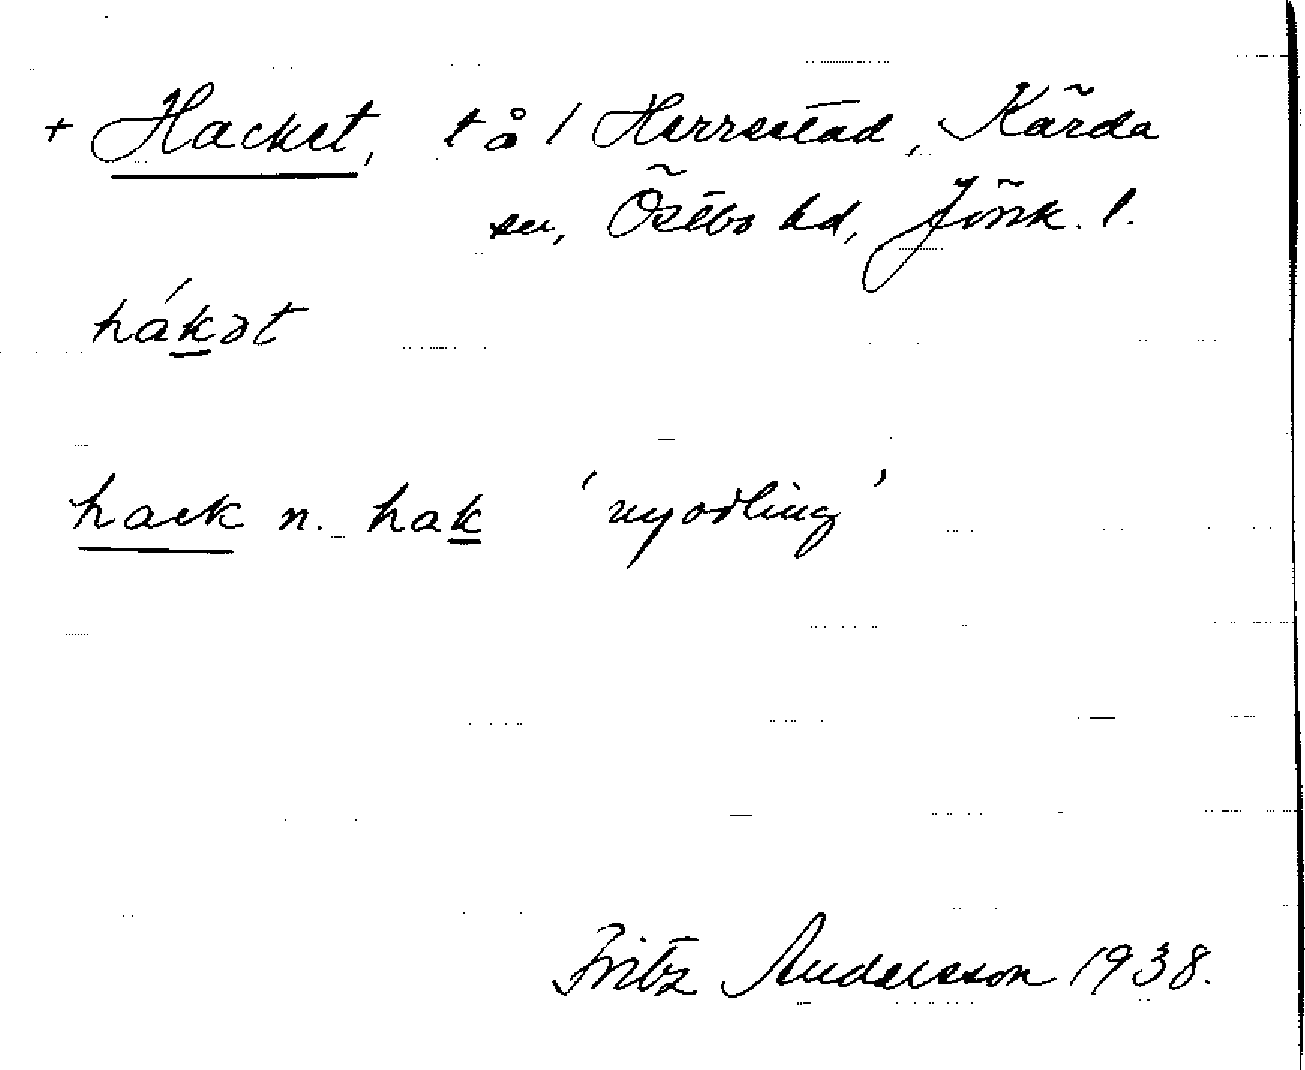 + Hacket, t å 1 Herrestad, Kärda
sn, Östbo hd, Jönk. l.
hákət
hack n. hak 'nyodling'
Fritz Andersson 1938.